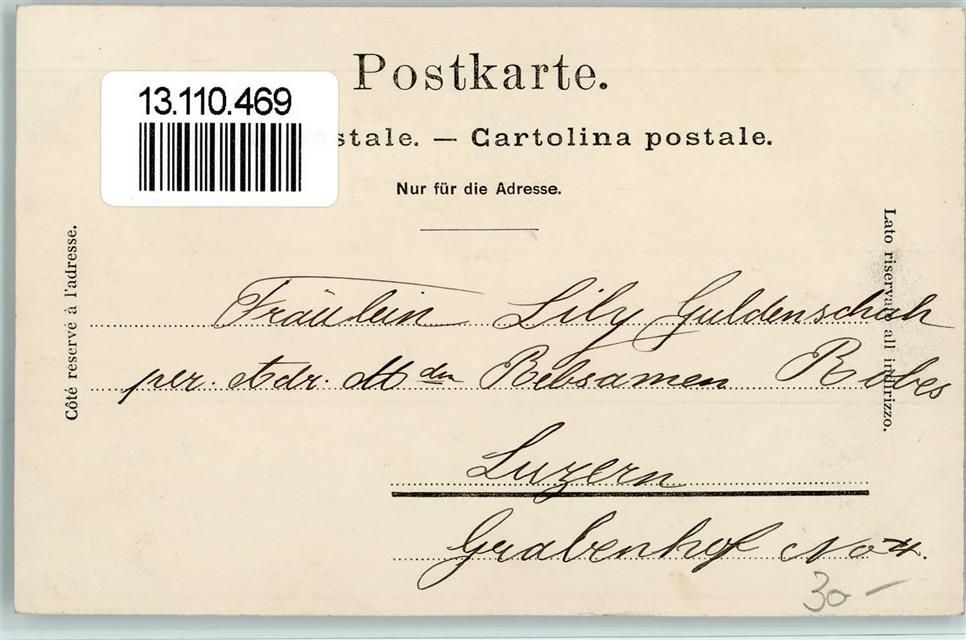 Postkarte.
13.110.469
stale. — Cartolina postale.
Nur für die Adresse.
Côté reservé à l'adresse.
Lato riservato all indirizzo.
Fräulein Lily Guldenschuh
per. Adr. Mdm Rebsamen Robes
Luzern
Grabenhof No 4.
30 -